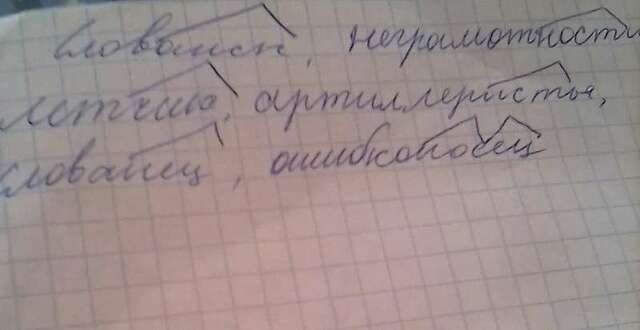 Словаист, неграмотности
летчик, артиллеристы,
словаиец, ошибконосец